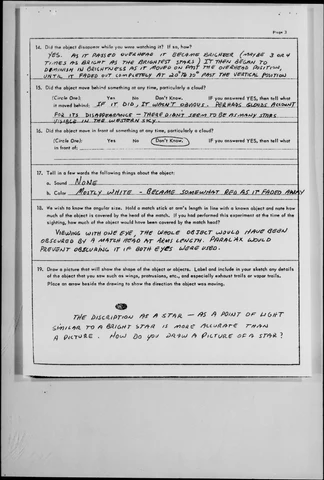 Page 3
14. Did the object disappear while you were watching it? If so, how?
YES. AS IT PASSED OVERHEAD IT BECAME BRIGHTER (MAYBE 3 OR 4
TIMES AS BRIGHT AS THE BRIGHTEST STARS) IT THEN BEGAN TO
DIMINISH IN BRIGHTNESS AS IT MOVED ON PAST THE OVERHEAD POSITION,
UNTIL IT FADED OUT COMPLETELY AT 20° PAST THE VERTICAL POSITION
15. Did the object move behind something at any time, particularly a cloud?
(Circle One): Yes No Don't Know. IF you answered YES, then tell what
it moved behind: IF IT DID, IT WASN'T OBVIOUS. PERHAPS CLOUDS ACCOUNT
FOR ITS DISAPPEARANCE - THERE DIDN'T SEEM TO BE AS MANY STARS
VISIBLE IN THE WESTERN SKY.
16. Did the object move in front of something at any time, particularly a cloud?
(Circle One): Yes No Don't Know. IF you answered YES, then tell what
in front of:
17. Tell in a few words the following things about the object:
a. Sound NONE
b. Color MOSTLY WHITE - BECAME SOMEWHAT RED AS IT FADED AWAY
18. We wish to know the angular size. Hold a match stick at arm's length in line with a known object and note how
much of the object is covered by the head of the match. If you had performed this experiment at the time of the
sighting, how much of the object would have been covered by the match head?
VIEWING WITH ONE EYE, THE WHOLE OBJECT WOULD HAVE BEEN
OBSCURED BY A MATCH HEAD AT ARMS LENGTH. PARALAX WOULD
PREVENT OBSCURING IT IF BOTH EYES WERE USED.
19. Draw a picture that will show the shape of the object or objects. Label and include in your sketch any details
of the object that you saw such as wings, protrusions, etc., and especially exhaust trails or vapor trails.
Place an arrow beside the drawing to show the direction the object was moving.
THE DISCRIPTION AS A STAR - AS A POINT OF LIGHT
SIMILAR TO A BRIGHT STAR IS MORE ACCURATE THAN
A PICTURE. HOW DO YOU DRAW A PICTURE OF A STAR?